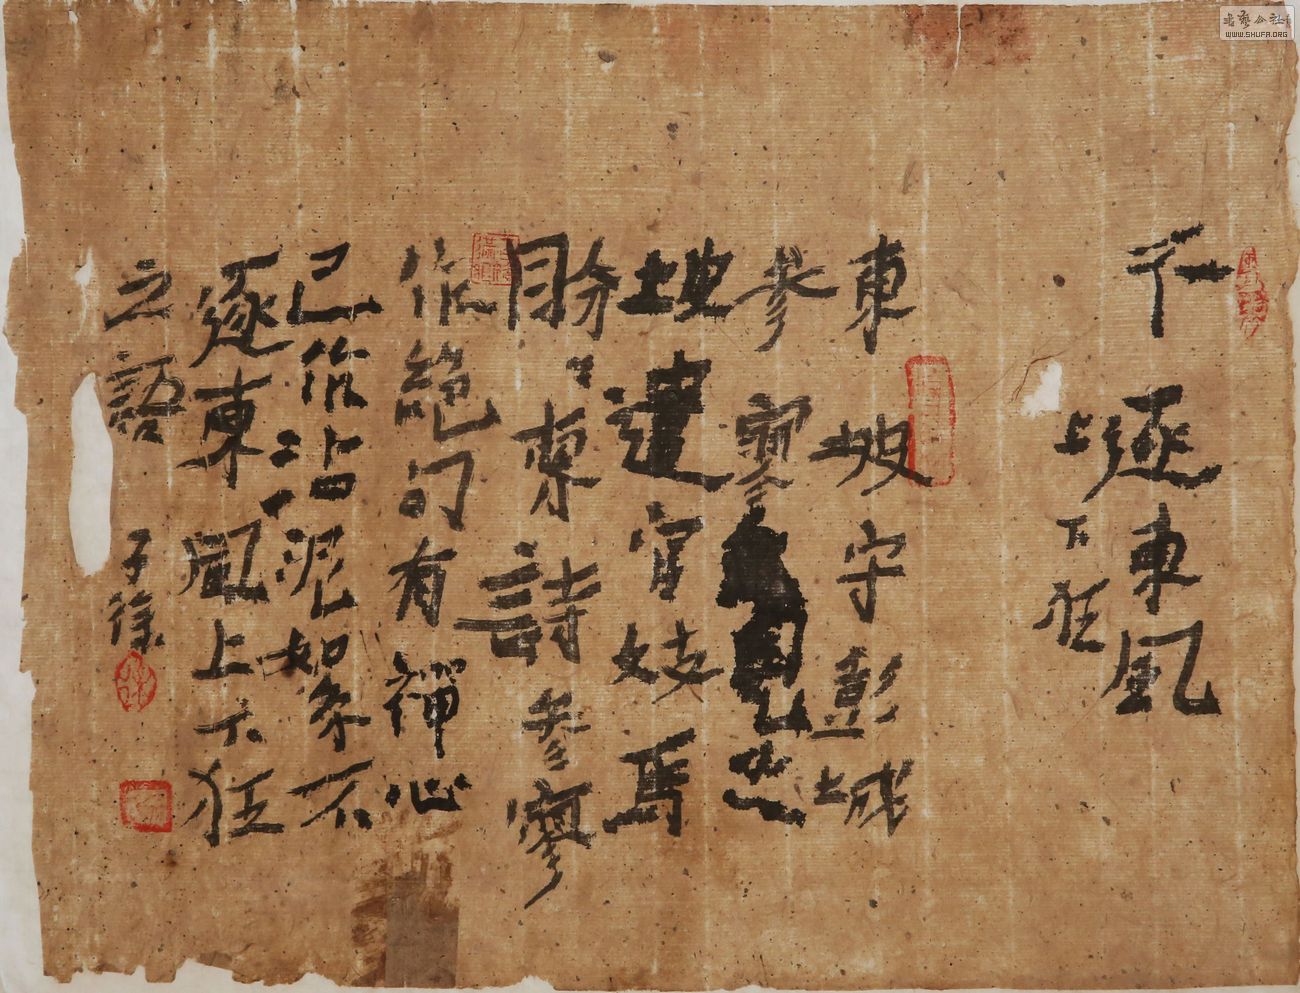 不逐東風
上下狂
東坡守彭城
參寥見之
坡遣官妓馬
盼〻索詩參寥
作絕句有禪心
已作沾泥絮不
逐東風上下狂
之語
子徐
書藝公社
WWW.SHUFA.ORG